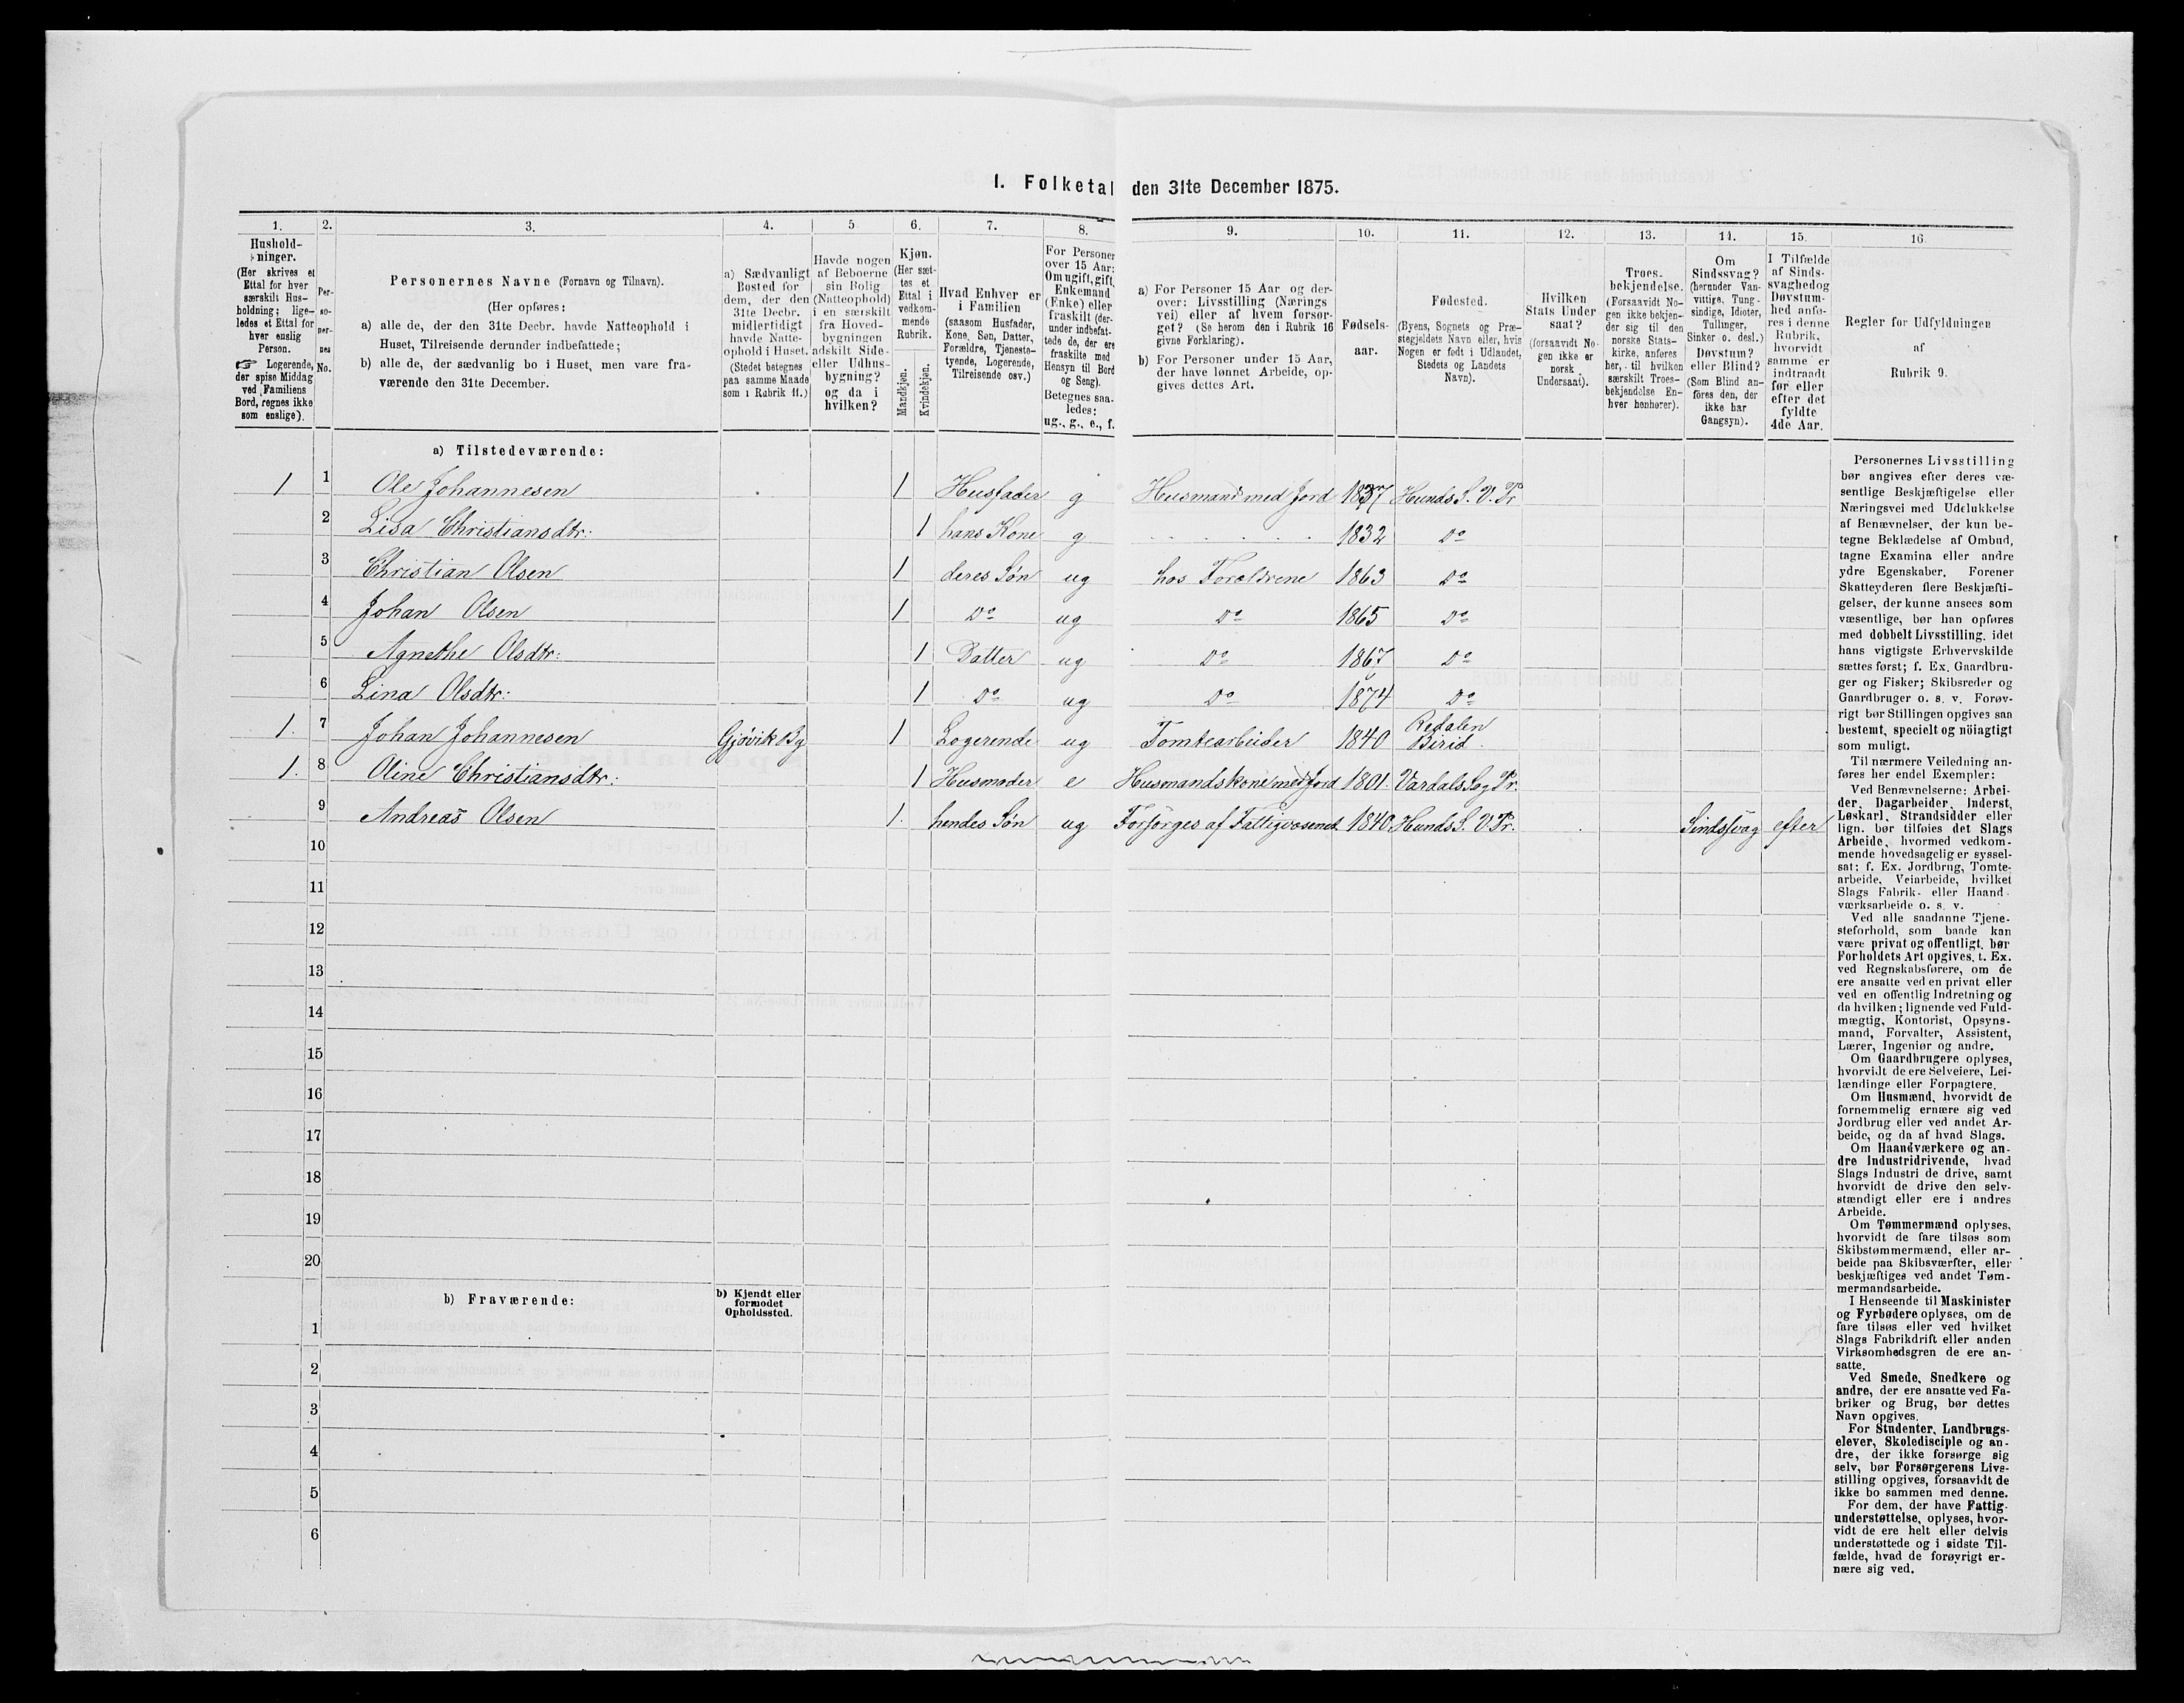 1. Folketal den 31te December 1875.
1. 2. 3. 4. 5 6. 7. 8. 9. 10. 11. 12. 13. 14. 15. 16.
Hushold-
ninger.
(Her skrives et
Ettal for hver
særskilt Hus-
holdning; lige-
ledes et Ettal for
hver enslig
Person.
☞ Logerende,
der spise Middag
ved Familiens
Bord, regnes ikke
som enslige).
Per-
so-
ner-
nes
No.
Personernes Navne (Fornavn og Tilnavn).
(Her opføres:
a) alle de, der den 31te Decbr. havde Natteophold i
Huset, Tilreisende derunder indbefattede;
b) alle de, der sædvanlig bo i Huset, men vare fra-
værende den 31te December.
a) Sædvanligt
Bosted for
dem, der den
31te Decbr.
midlertidigt
havde Natte-
ophold i Huset.
(Stedet betegnes
paa samme Maade
som i Rubrik 11.)
Havde nogen
af Beboerne
sin Bolig
(Natteophold)
i en særskilt
fra Hoved-
bygningen
adskilt Side-
eller Udhus-
bygning?
og da i
hvilken?
Kjøn.
(Her sæt-
tes et
Ettal i
vedkom-
mende
Rubrik.
Mandkjøn.
Kvindekjøn.
Hvad Enhver er
i Familien
(saasom Husfader,
Kone, Søn, Datter,
Forældre, Tjeneste-
tyende, Logerende,
Tilreisende osv.)
For Personer
over 15 Aar:
Om ugift, gift,
Enkemand
(Enke) eller
fraskilt (der-
under indbefat-
tede de, der ere
fraskilte med
Hensyn til Bord
og Seng).
Betegnes saa-
ledes:
ug., g., e., f.
a) For Personer 15 Aar og der-
over: Livsstilling (Nærings
vei) eller af hvem forsør-
get? (Se herom den i Rubrik 16
givne Forklaring).
b) For Personer under 15 Aar,
der have lønnet Arbeide, op-
gives dettes Art.
Fødsels-
aar.
Fødested.
(Byens, Sognets og Præ-
stegjeldets Navn eller, hvis
Nogen er født i Udlandet,
Stedets og Landets
Navn).
Hvilken
Stats Under
saat?
(forsaavidt No-
gen ikke er
norsk
Undersaat).
Troes-
bekjendelse.
(Forsaavidt No-
gen ikke bekjen-
der sig til den
norske Stats-
kirke, anføres
her, til hvilken
særskilt Troes-
bekjendelse En-
hver henhører).
Om
Sindssvag?
(herunder Van-
vittige, Tung-
sindige, Idioter,
Tullinger,
Sinker o. desl.)
Døvstum?
eller Blind?
(Som Blind an-
føres den, der
ikke har
Gangsyn).
I Tilfælde
af Sinds-
svaghedog
Døvstum-
hed anfø-
res i denne
Rubrik,
hvorvidt
samme er
indtraadt
før eller
efter det
fyldte
4de Aar.
Regler for Udfyldningen
af
Rubrik 9.
a) Tilstedeværende:
1 1 Ole Johannesen 1 Husfader g Husmand med Jord 1837 Hunds S. V. Pr
2 Lisa Christiansdtr: 1 hans Kone g 1832 Do
3 Christian Olsen 1 deres Søn ug hos Forældrene 1863 Do
4 Johan Olsen 1 Do ug Do 1865 Do
5 Agnethe Olsdtr: 1 Datter ug Do 1867 Do
6 Lina Olsdtr: 1 Do ug Do 1874 Do
1. 7 Johan Johannesen Gjøvik By 1 Logerende ug Tomtearbeider 1840 Redalen Birid.
1. 8 Oline Christiansdtr: 1 Husmoder e Husmandskone med Jord 1801. Vardals Sog Pr.
9 Andreas Olsen 1. hendes Søn ug Forsørges af Fattigvæsenet. 1840. Hunds S. V. Pr. Sindssvag efter
10
11
12
13
14
15
16
17
18
19
20
b) Fraværende: b) Kjendt eller
formodet
Opholdssted.
1
2
3
4
5
6
Personernes Livsstilling
bør angives efter deres væ-
sentlige Beskjæftigelse eller
Næringsvei med Udelukkelse
af Benævnelser, der kun be-
tegne Beklædelse af Ombud,
tagne Examina eller andre
ydre Egenskaber. Forener
Skatteyderen flere Beskjæfti-
gelser, der kunne ansees som
væsentlige, bør han opføres
med dobbelt Livsstilling, idet
hans vigtigste Erhvervskilde
sættes først; f. Ex. Gaardbru-
ger og Fisker; Skibsreder og
Gaardbruger o. s. v. Forøv-
rigt bør Stillingen opgives saa
bestemt, specielt og nöiagtigt
som muligt.
Til nærmere Veiledning an-
føres her endel Exempler:
Ved Benævnelserne: Arbei-
der, Dagarbeider, Inderst,
Løskarl, Strandsidder eller
lign. bør tilføies det Slags
Arbeide, hvormed vedkom-
mende hovedsagelig er syssel-
sat; f. Ex. Jordbrug, Tomte-
arbeide, Veiarbeide, hvilket
Slags Fabrik- eller Haand-
værksarbeide o. s. v.
Ved alle saadanne Tjene-
steforhold, som baade kan
være privat og offentligt, bør
Forholdets Art opgives, t. Ex.
ved Regnskabsførere, om de
ere ansatte ved en privat eller
ved en offentlig Indretning og
da hvilken; lignende ved Fuld-
mægtig, Kontorist, Opsyns-
mand, Forvalter, Assistent,
Lærer, Ingeniør og andre.
Om Gaardbrugere oplyses,
hvorvidt de ere Selveiere, Lei-
lændinge eller Forpagtere.
Om Husmænd, hvorvidt de
fornemmelig ernære sig ved
Jordbrug eller ved andet Ar-
beide, og da af hvad Slags.
Om Haandværkere og an-
dre Industridrivende, hvad
Slags Industri de drive, samt
hvorvidt de drive den selv-
stændigt eller ere i andres
Arbeide.
Om Tømmermænd oplyses,
hvorvidt de fare tilsøs som
Skibstømmermænd, eller ar-
beide paa Skibsværfter, eller
beskjæftiges ved andet Tøm-
mermandsarbeide.
I Henseende til Maskinister
og Fyrbødere oplyses, om de
fare tilsøs eller ved hvilket
Slags Fabrikdrift eller anden
Virksomhedsgren de ere an-
satte.
Ved Smede, Snedkere og
andre, der ere ansatte ved Fa-
briker og Brug, bør dettes
Navn opgives.
For Studenter, Landbrugs-
elever, Skoledisciple og an-
dre, der ikke forsørge sig
selv, bør Forsørgerens Livs-
stilling opgives, forsaavidt de
ikke bo sammen med denne.
For dem, der have Fattig-
understøttelse, oplyses, hvor-
vidt de ere helt eller delvis
understøttede og i sidste Til-
fælde, hvad de forøvrigt er-
nære sig ved.